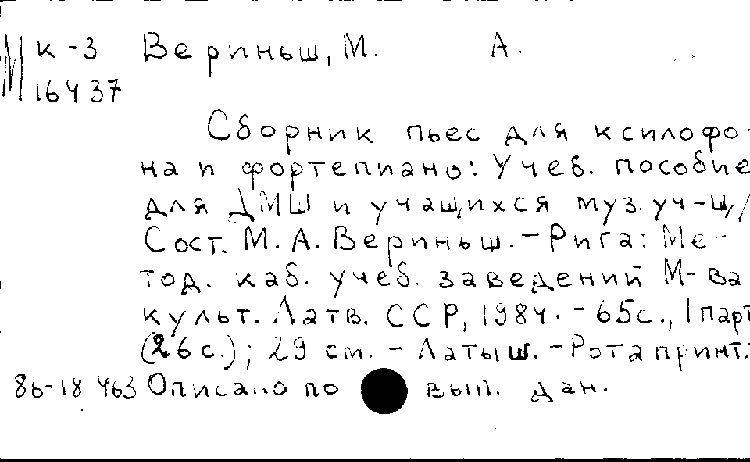 М к-3 Вериньш, М. А.
16437
Сборник пьес для ксилофо-
на и фортепиано: Учеб. пособие
для ДМШ и учащихся муз. уч-щ/
Сост. М. А. Вериньш. - Рига: Ме-
тод. каб. учеб. заведений М-ва
культ. Латв. ССР, 1984. - 65с., 1 парт.
(26 с.); 29 см. - Латыш. - Ротапринт.
86-18463 Описано по вып. дан.